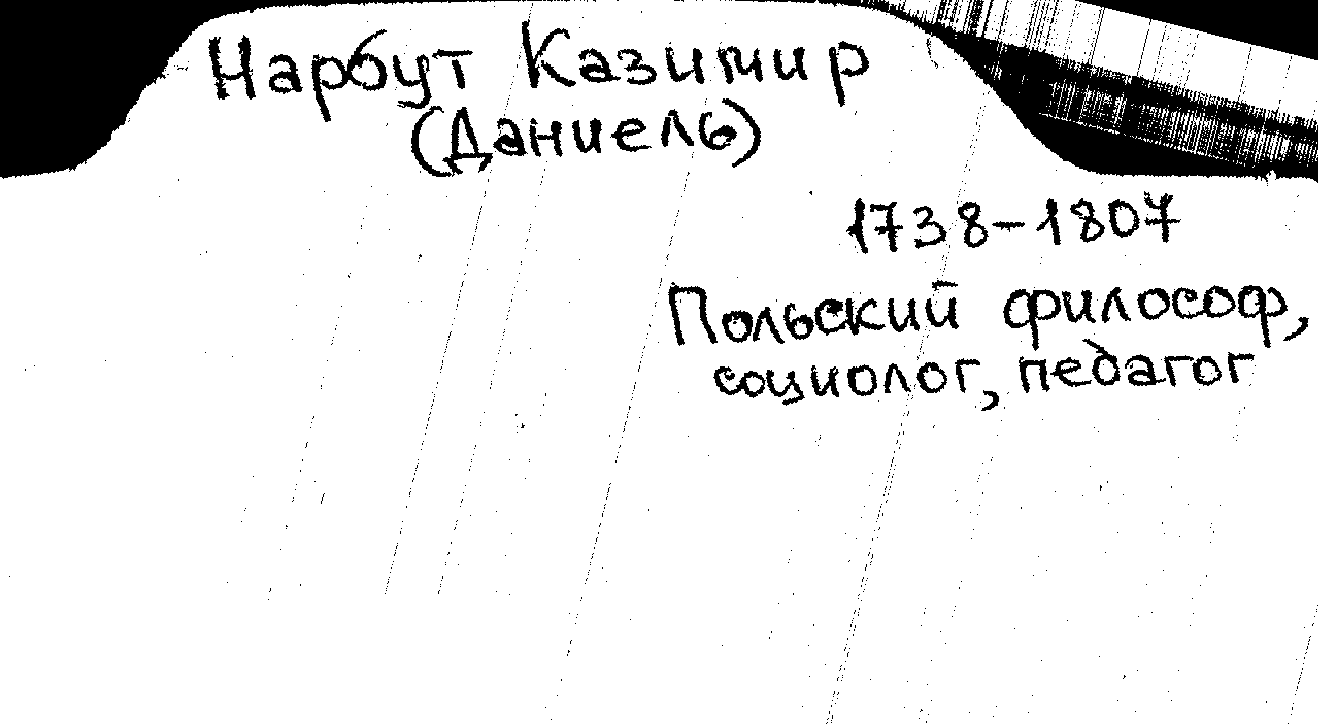 Нарбут Казимир
(Даниель)
1738-1807
Польский философ,
социолог, педагог